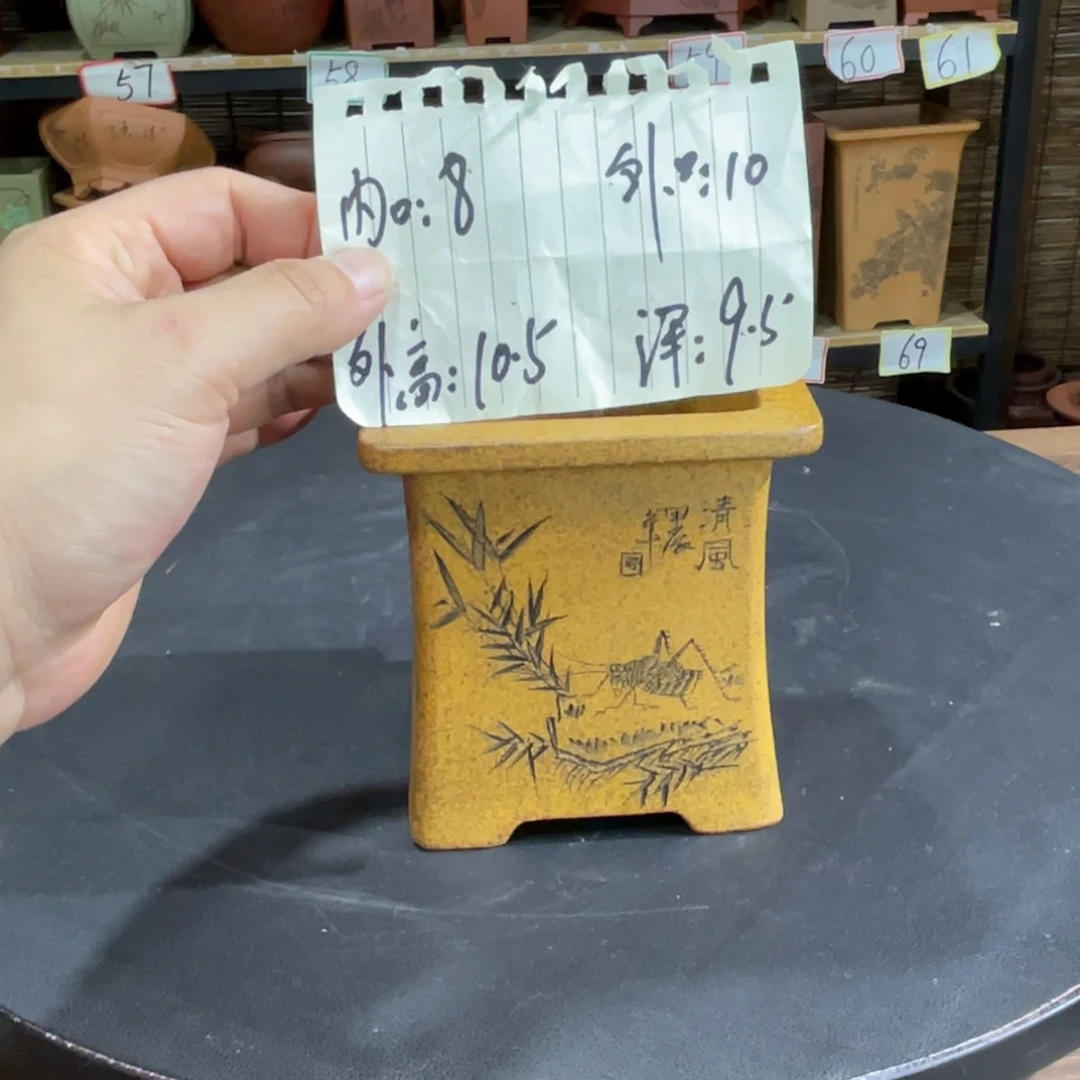 57
58
59
60
61
内口:8
外口:10
外高:10.5
深:9.5
69
清風